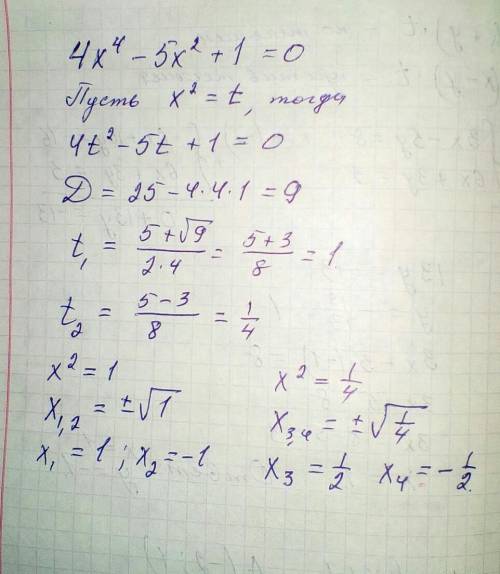 4x⁴ - 5x² + 1 = 0
Пусть x² = t, тогда
4t² - 5t + 1 = 0
D = 25 - 4·4·1 = 9
t₁ = (5+√9)/(2·4) = (5+3)/8 = 1
t₂ = (5-3)/8 = 1/4
x² = 1
x₁,₂ = ±√1
x₁ = 1; x₂ = -1
x² = 1/4
x₃,₄ = ±√(1/4)
x₃ = 1/2 x₄ = -1/2